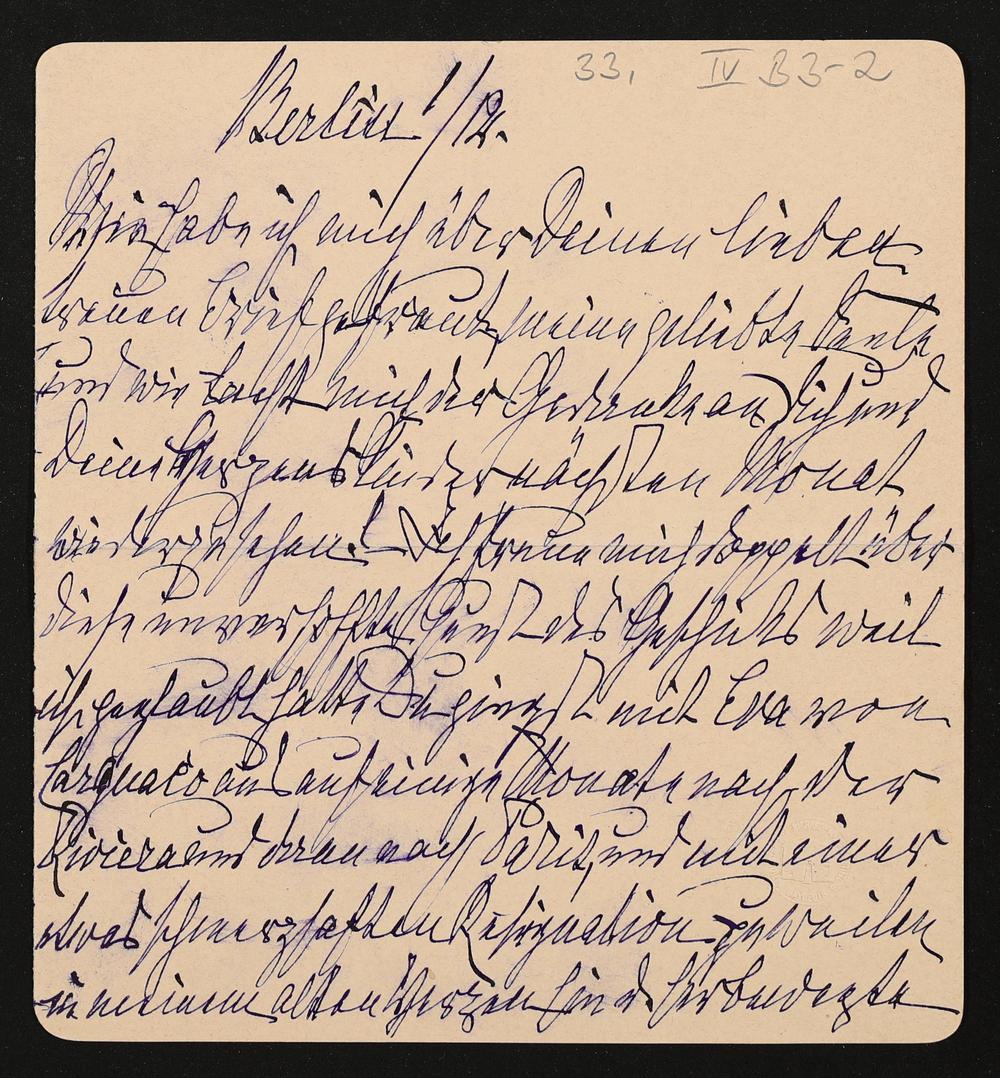 33, IV B3-2
Berlin 1/12.
Wie habe ich mich über Deinen lieben
treuen Brief gefreut, meine geliebte Bente
und wie lacht mich der Gedanke an Dich und
Deine Herzenskinder nächsten Monat
wiederzusehen! Ich freue mich doppelt über
diese unverhoffte Gunst des Geschicks weil
ich geglaubt hatte Du gingst mit Eva von
Cargnacco aus auf einige Monate nach der
Riviera und dann nach Paris, und mit einer
etwas schmerzhaften Resignation zuweilen
in meinem alten Herzen hin u. herbewegte